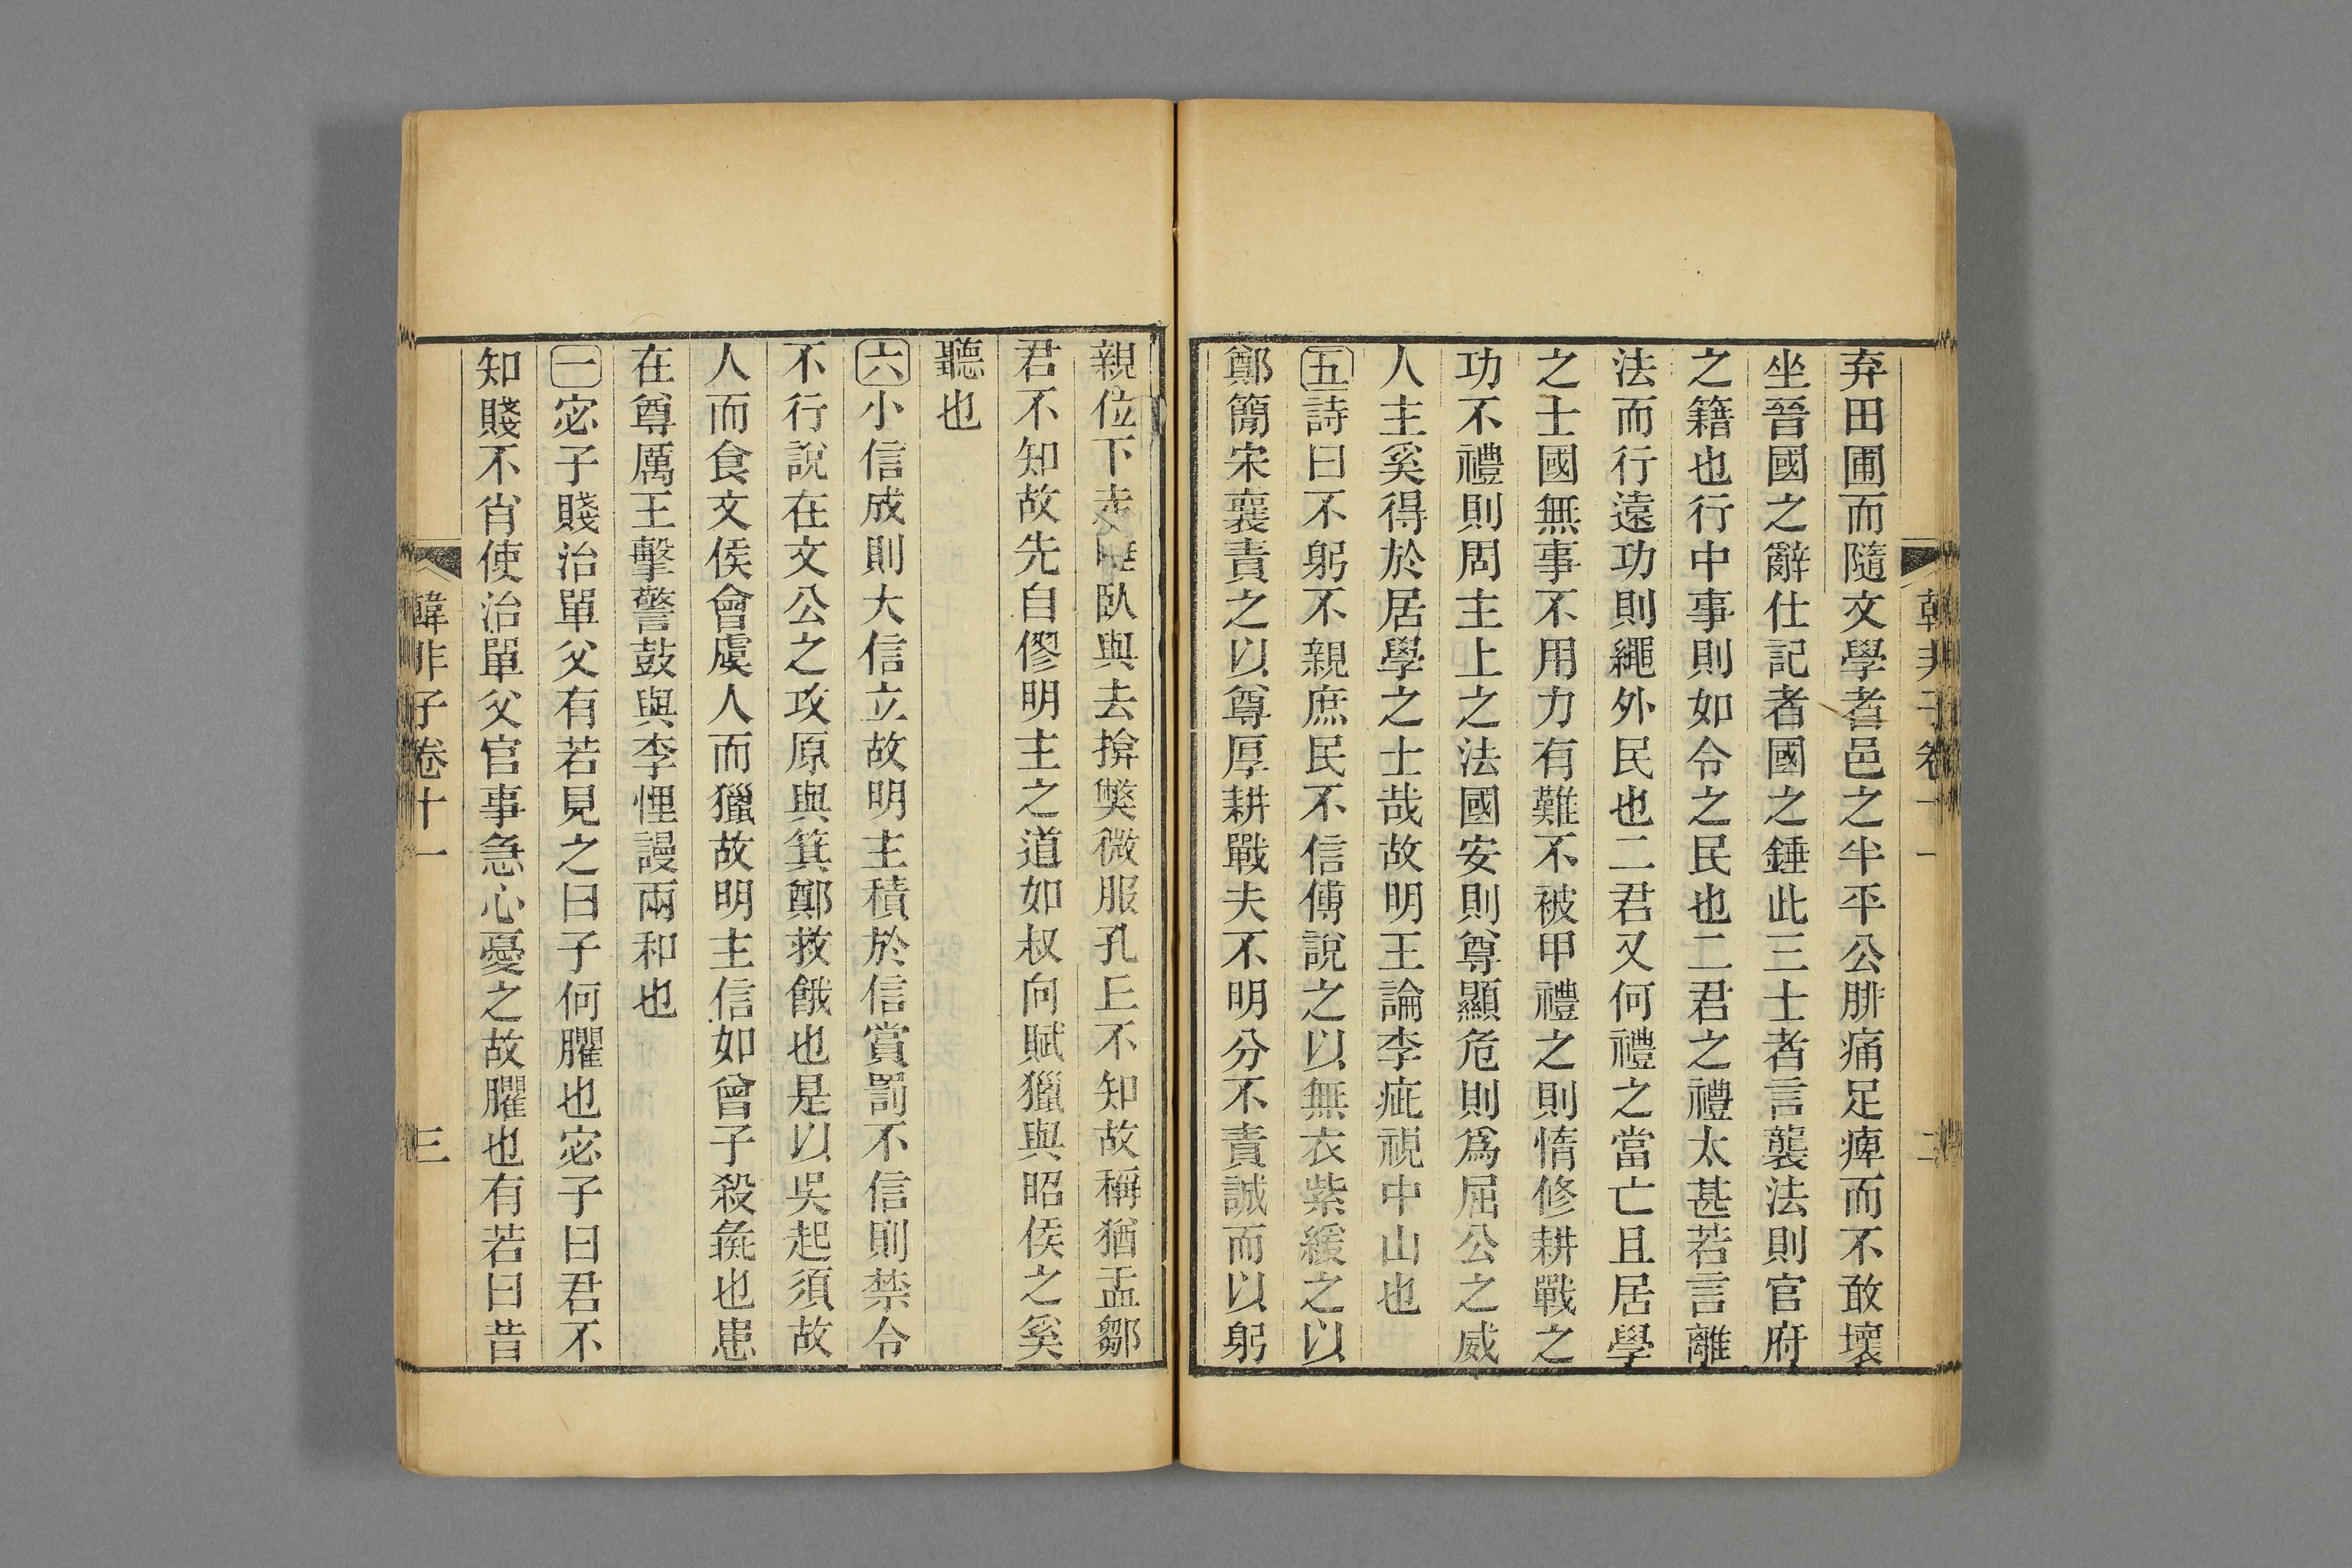 弃田圃而隨文學者邑之半平公腓痛足痺而不敢壞
坐晉國之辭仕記者國之錘此三士者言襲法則官府
之籍也行中事則如令之民也二君之禮太甚若言離
法而行遠功則繩外民也二君又何禮之當亡且居學
之士國無事不用力有難不被甲禮之則惰修耕戰之
功不禮則周主上之法國安則尊顯危則爲屈公之威
人主奚得於居學之士哉故明王論李疵視中山也
五詩曰不躬不親庶民不信傅說之以無衣紫緩之以
鄭簡宋襄責之以尊厚耕戰夫不明分不責誠而以躬
親位下走睡臥與去揜獘微服孔丘不知故稱猶盂鄒
君不知故先自僇明主之道如叔向賦獵與昭侯之奚
聽也
六小信成則大信立故明主積於信賞罰不信則禁令
不行說在文公之攻原與箕鄭救餓也是以吳起須故
人而食文侯會虞人而獵故明主信如曾子殺彘也患
在尊厲王擊警鼓與李悝謾兩和也
一宓子賤治單父有若見之曰子何臞也宓子曰君不
知賤不肖使治單父官事急心憂之故臞也有若曰昔
韓非子卷十一
三